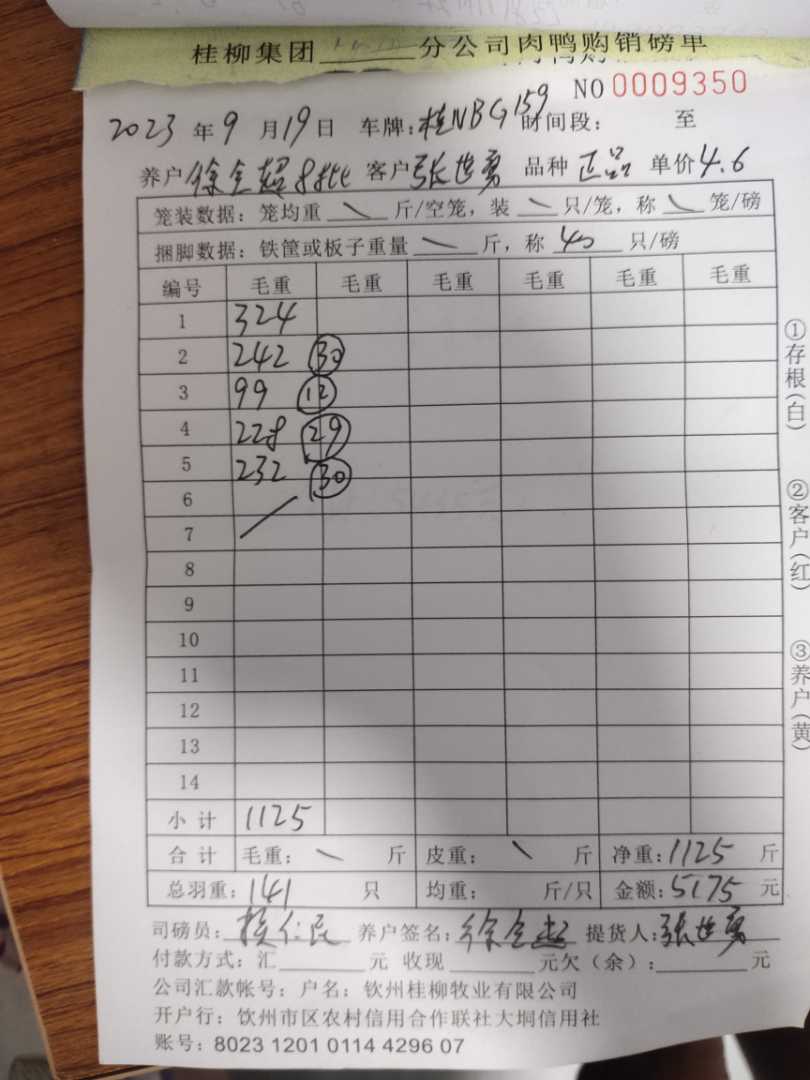 桂柳集团 分公司肉鸭购销磅单
NO 0009350
2023 年 9 月 19 日 车牌: 桂NBG159 时间段: 至
养户 徐全超8批 客户 张世勇 品种 正品 单价 4.6
笼装数据: 笼均重 \ 斤/空笼, 装 \ 只/笼, 称 \ 笼/磅
捆脚数据: 铁筐或板子重量 \ 斤, 称 40 只/磅
编号 毛重 毛重 毛重 毛重 毛重 毛重
1 324
2 242 30
3 99 12
4 228 29
5 232 30
6
7
8
9
10
11
12
13
14
小计 1125
合计 毛重: \ 斤 皮重: \ 斤 净重: 1125 斤
总羽重: 141 只 均重: 斤/只 金额: 5175 元
司磅员: 仁民 养户签名: 徐全超 提货人: 张世勇
付款方式: 汇 元 收现 元欠(余): 元
公司汇款帐号: 户名: 钦州桂柳牧业有限公司
开户行: 钦州市区农村信用合作联社大垌信用社
账号: 8023 1201 0114 4296 07
①存根(白)
②客户(红)
③养户(黄)